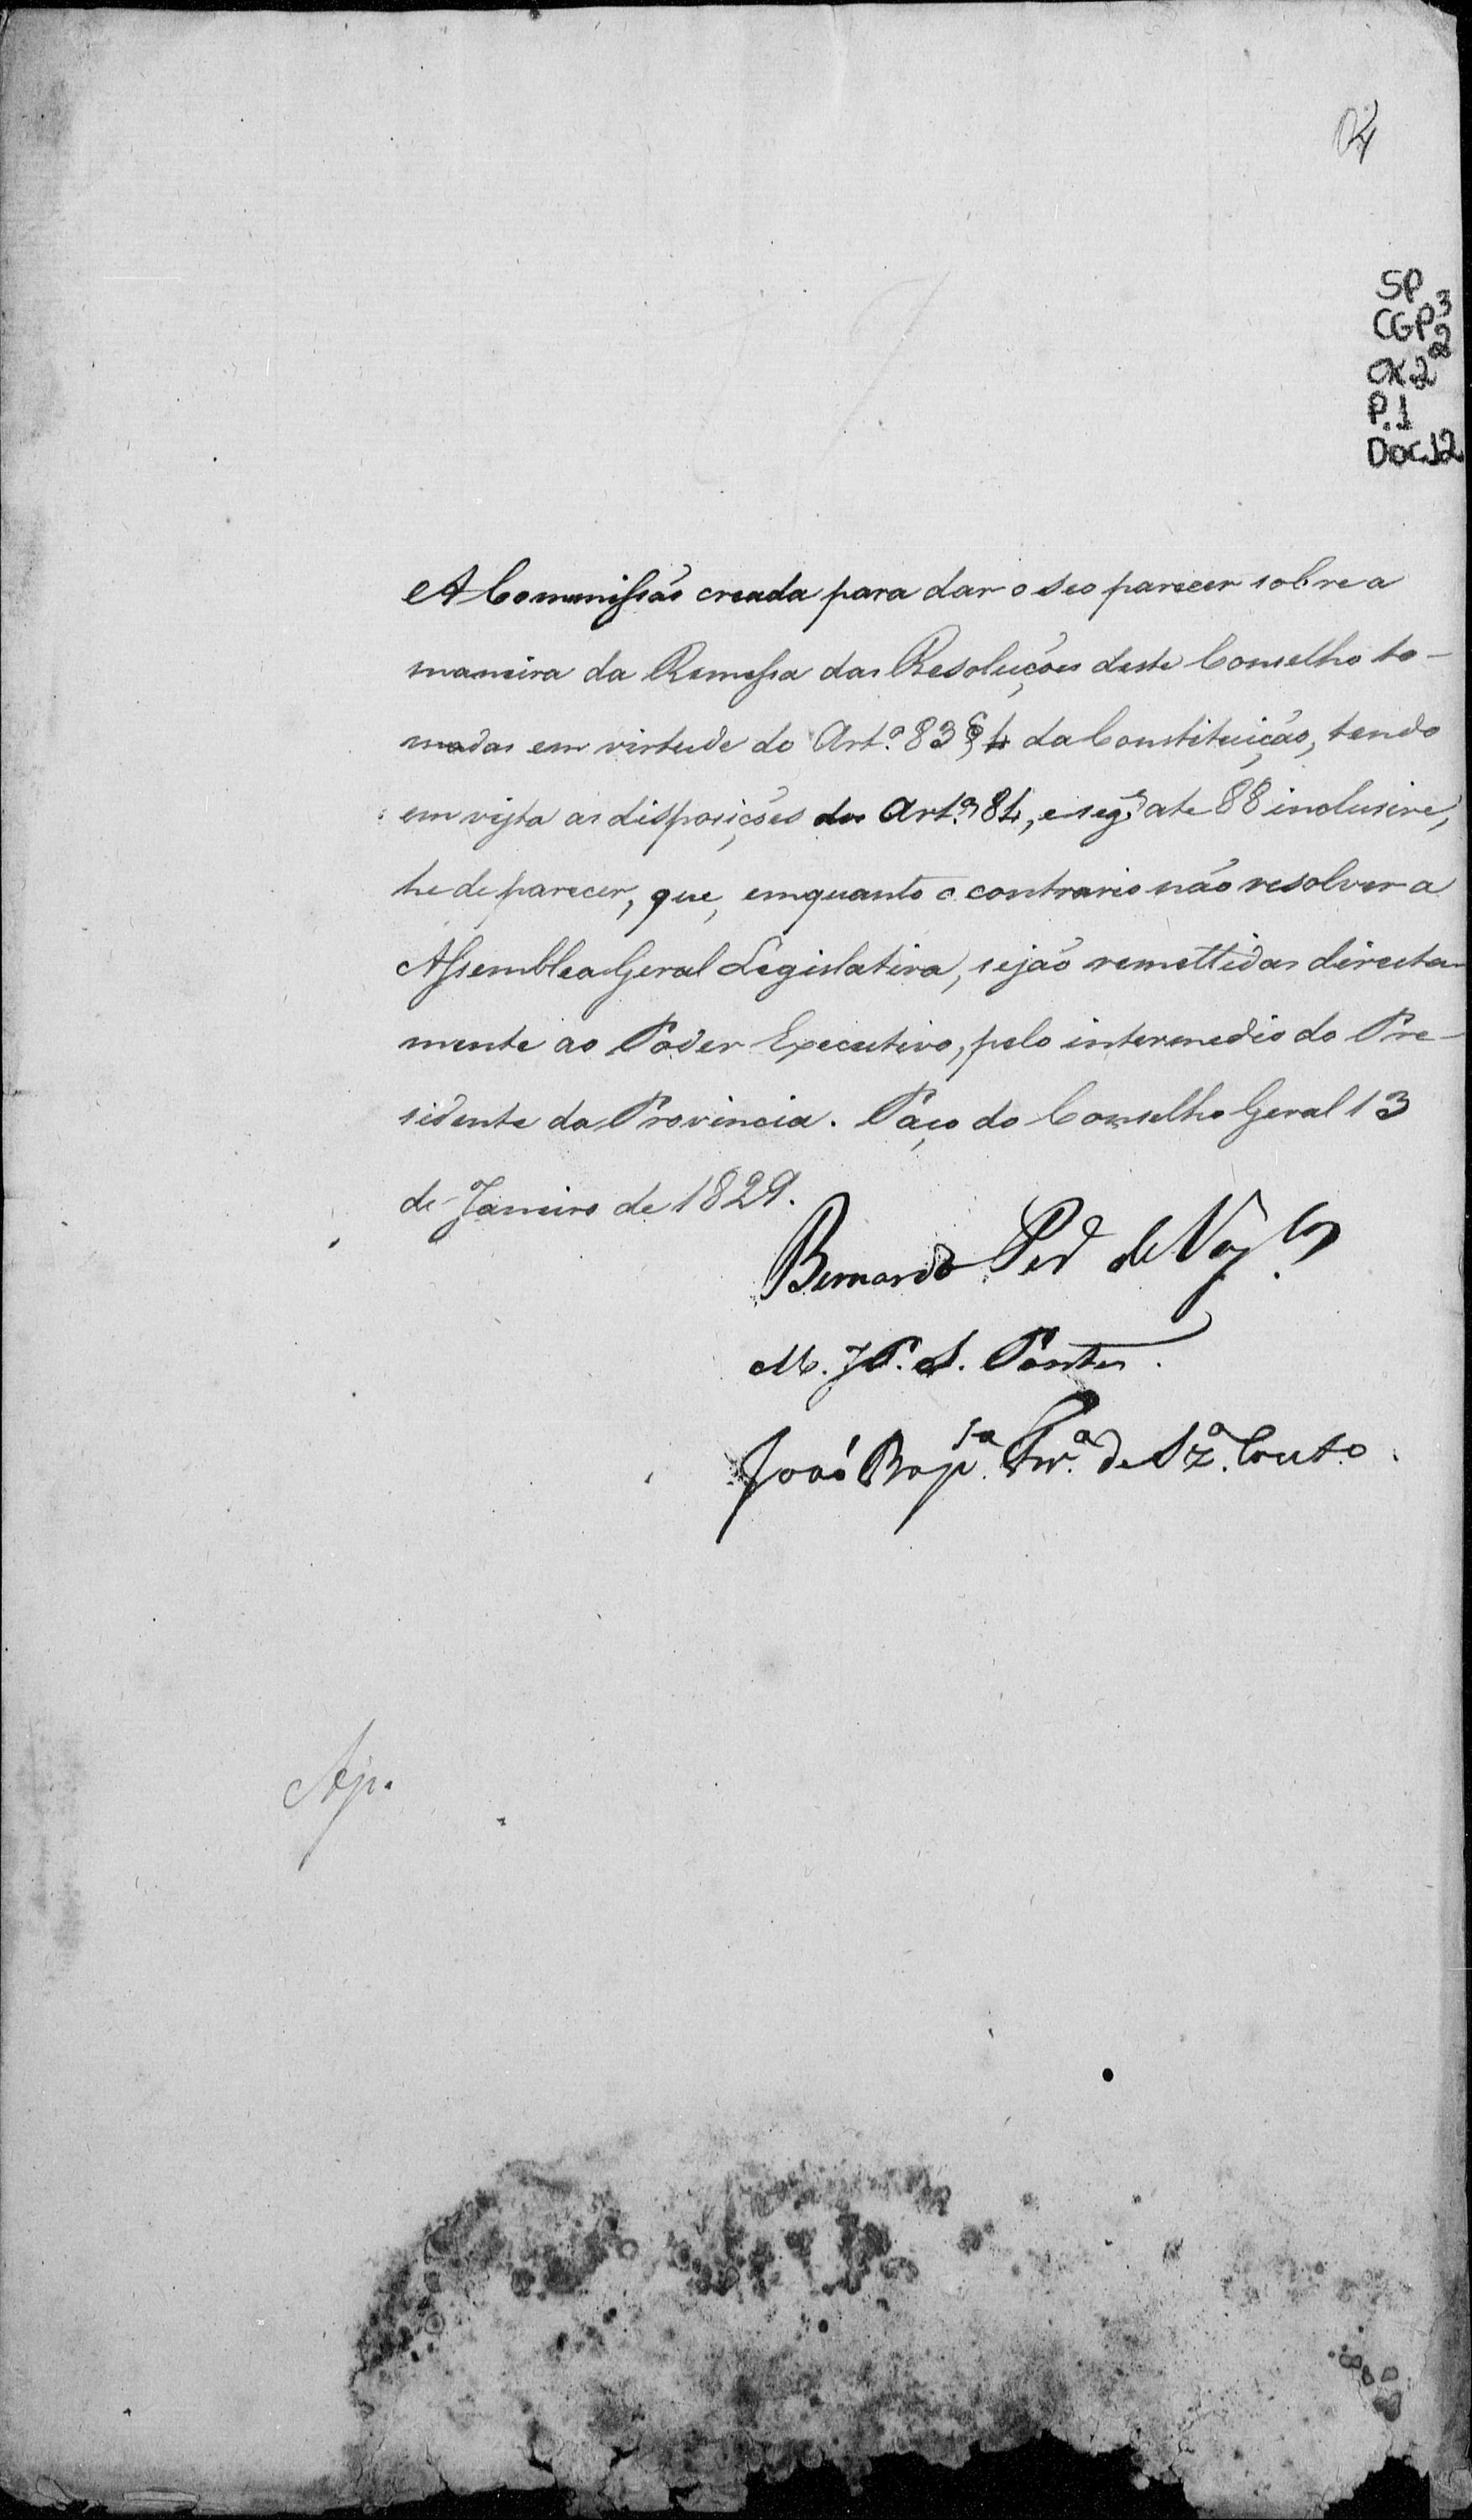 04
SP
CGP3
CX 2 2
P.1
Doc.12
A Commissão creada para dar o seo parecer sobre a
maneira da Remessa das Resoluções deste Conselho to-
madas em virtude do Art.º 83 § 4 da Constituição, tendo
em vista as disposições dos Art.os 84, e seg.es ate 88 inclusive,
he de parecer, que, emquanto o contrario não resolver a
Assemblea Geral Legislativa, sejão remettidas directa-
mente ao Poder Executivo, pelo intermedio do Pre-
sidente da Provincia. Paço do Conselho Geral 13
de Janeiro de 1829.
Bernardo Per.
M. J. P. S. Pontes.
João Bap.ta Fr.a de Sz.a Couto.
Ap.